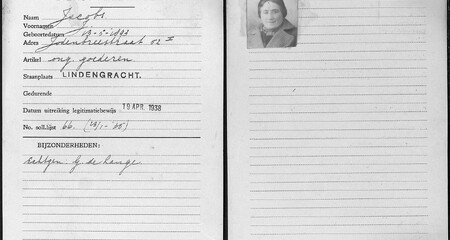 Naam Jacobs
Voornamen J.
Geboortedatum
Adres Jodenbreestraat 62 II
Artikel ong. goederen
Staanplaats LINDENGRACHT.
Gedurende
Datum uitreiking legitimatiebewijs 19 APR. 1938
No. soll.lijst 66.
BIJZONDERHEDEN:
echtgen. de Lange